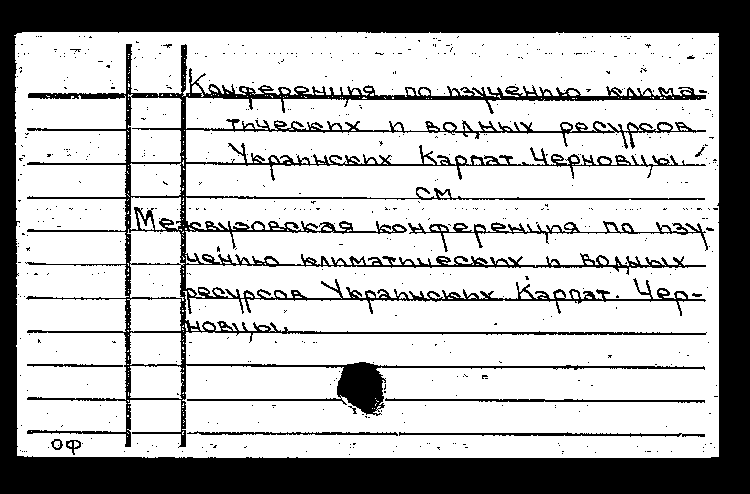 Конференция по изучению клима-
тических и водных ресурсов
Украинских Карпат. Черновцы.
см.
Межвузовская конференция по изу-
чению климатических и водных
ресурсов Украинских Карпат. Чер-
новцы.
ОФ